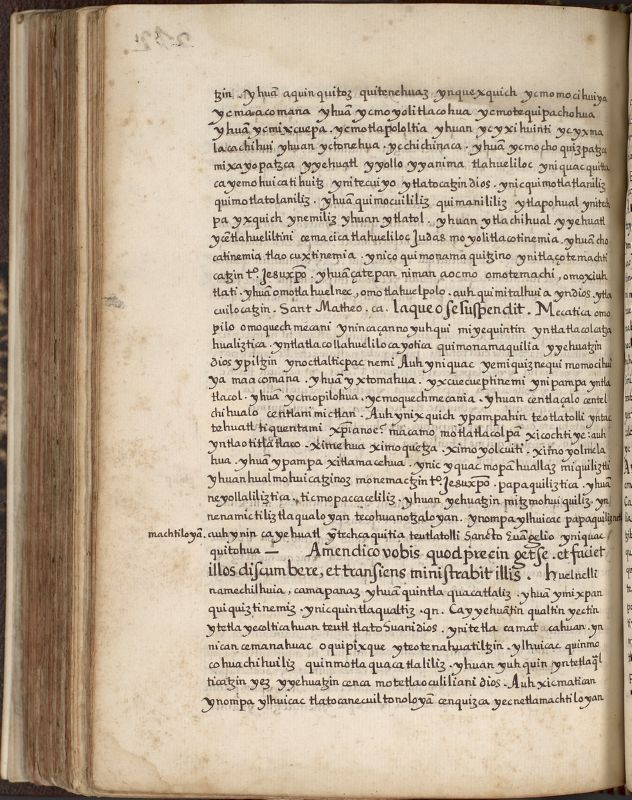 tzin. yhuā aquin quitoz quitenehuaz ynquexquich ycmomocihuiya
ycmaacomana yhuā ycmoyolitlacohua ycmotequipachohua
yhuā ycmixcuepa. ycmotlapololtia yhuan ycyxihuinti ycyxma
lacachihui yhuan yctonehua. ycchichinaca. yhuā ycmocho quizpatzca
mixayopatzca yyehuatl yyollo yyanima tlahueliloc yniquac quitta
ca yemohuicatihuitz ynitecuiyo ytlatocatzin dios. ynic quimotlatlaniliz
quimotlatolaniliz. yhuā quimocuililiz quimaniliz ytlapohual ynitech
pa yxquich ynemiliz yhuan ytlatol. yhuan ytlachihual yyehuatl
ycētlahueliltini cemacica tlahueliloc Judas moyolitlacotinemia. yhuā cho
catinemia tlaocuxtinemia. ynico quimonamaquitzino ynitlaçotemachti
catzin tº. Jesuxpō. yhuā çatepan niman aocmo omotemachi, omoxiuh
tlati. yhuā omotlahuelnec, omotlahuelpolo. auh quimitalhuia yn dios. ytla
cuilocatzin. Sant Matheo. ca. laqueo se suspendit. Mecatica omo
pilo omoquechmecani ynin caçanno yuhqui miyequintin yntlatlacolcatza
hualiztica. yntlatlacollahuelilocayotica quimonamaquilia yyehuatzin
dios ypiltzin ynoctlalticpac nemi Auh yniquac yemiquiznequi momocihui
ya maacomana. yhuā yxtomahua. yxcuecueptinemi ynipampa yntla
tlacol. yhuā ycmopilohua. ycmoquechmecania. yhuan centlaçalo centel
chihualo centlani mictlan. Auh ynixquich ypampahin teotlatolli yntac
tehuatl tiquentami xpiano? macamo motlatlacolpā xicochtiye: auh
yntlaotitlatlaco. ximehua ximoquetza. ximoyolcuiti. ximoyolmela
hua. yhuā ypampa xitlamacehua. ynic yquac mopā huallaz miquiliztli
yhuan hualmohuicatzinoz monemactzin tº. Jesuxpō. papaquiliztica. yhuā
neyollaliliztica. ticmopaccaceliliz. yhuan yehuatzin mitzmohuiquiliz. yn
nenamictiliztlaqualoyan tecohuanotzaloyan. ynompa ylhuicac papaquiliznet
machtiloyā. auh ynin ca yehuatl ytechcaquitia teutlatolli Sancto Euāgelio yniquac
quitohua — Amen dico vobis quod precingetse. et faciet
illos discumbere, et transiens ministrabit illis. huelnelli
namechilhuia, camapanaz yhuā quintlaquacatlaliz. yhuā ymixpan
quiquiztinemiz. ynic quintlaqualtiz. qn. Ca yyehuātin qualtin yectin
ytetlayecolticahuan teutl tlatohuani dios. ynitetlacamatcahuan. yn
nican cemanahuac oquipixque yteotenahuatiltzin. ylhuicac quinmo
cohuachihuiliz quinmotlaquacatlaliliz. yhuan yuhquin yntetlaq̄l
ticatzin yez yyehuatzin cenca motetlaoculiliani dios. Auh xicmatican
ynompa ylhuicac tlatocanecuiltonoloyā cenquizca yecnetlamachtiloyan